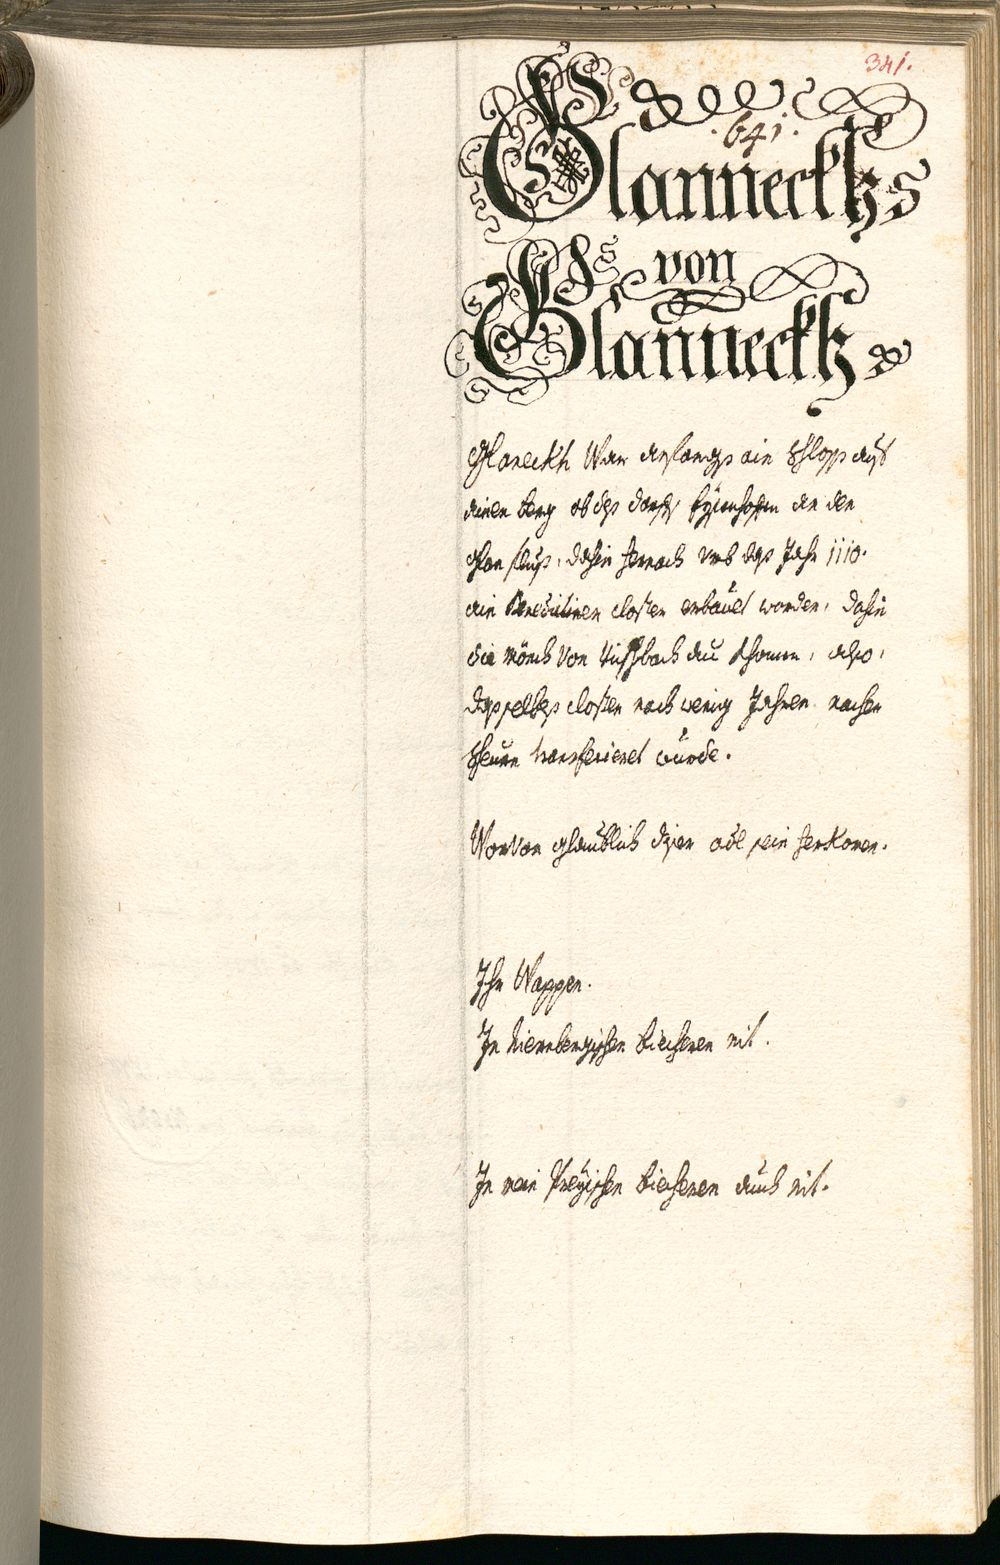 341.
641.
Glanneckhs
von
Glanneckh
Glaneckh War anfangs ein Schloss auf
einen berg ob des dorfs Eysenhofen an den
Glon fluss, dahin hernach umb das Jahr 1110.
ein Benedictiner closter erbauet worden, dahin
die Mönch von Vischbach aus khomen, also,
das selbes closter nach wenig Jahren nacher
Scheurn transferieret wurde.
Worvon glaublich diser adl sein herkomen.
Ihr Wappen.
In Niernbergischen biecheren nit.
In mein Preyischen biecheren auch nit.